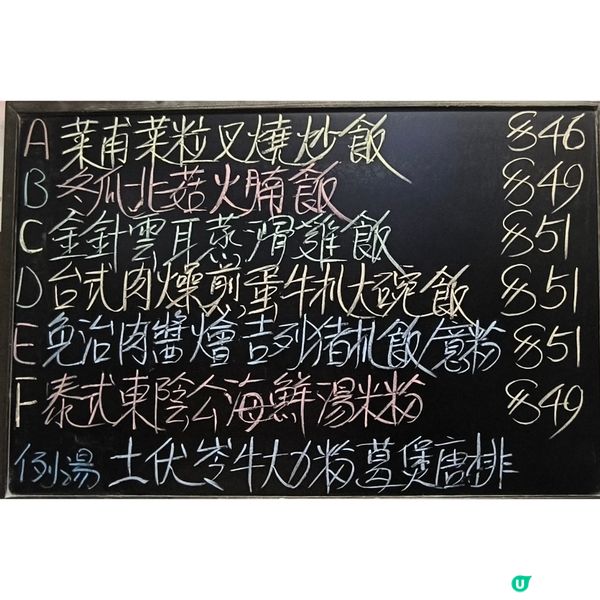 A 菜甫菜粒叉燒炒飯 $46
B 冬瓜北菇火腩飯 $49
C 金針雲耳蒸滑雞飯 $51
D 台式肉燥煎蛋牛扒大碗飯 $51
E 免治肉醬燴吉列豬扒飯/意粉 $51
F 泰式東陰公海鮮湯米粉 $49
例湯 土伏苓牛大力粉葛煲唐排
U